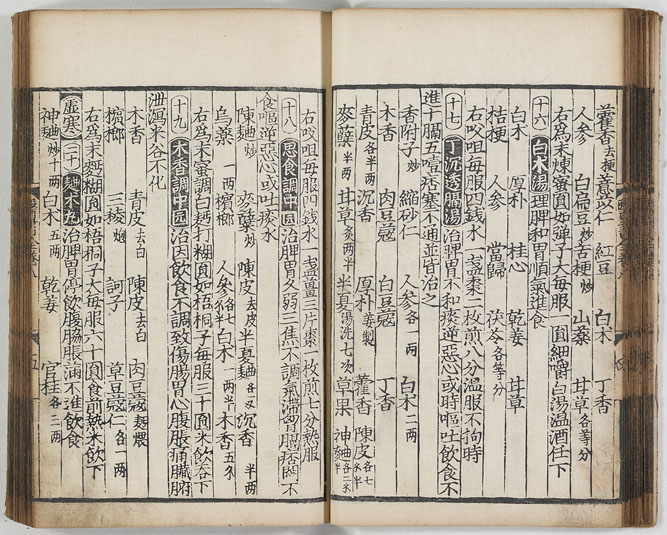 藿香去梗 薏苡仁 紅豆 白木 丁香
人参 白扁豆炒 苦梗炒 山藥 甘草各等分
右為末煉蜜圓如弹子大每服一圓細嚼白湯温酒任下
十六 白木湯 理脾和胃順氣進食
白木 厚朴 桂心 乾姜 甘草
桔梗 人参 當歸 茯苓各等分
右㕮咀每服四錢水一盞棗二枚煎八分温服不拘時
十七 丁沉透膈湯 治脾胃不和痰逆惡心或時嘔吐飲食不
進十膈五噎痞塞不通並皆治之
香附子炒 縮砂仁 人参各一两 白木二两
木香 肉豆蔻 白豆蔻 丁香
青皮各半两 沉香 厚朴姜製 藿香 陳皮各七
麥蘖半两 甘草 半夏湯洗七次 草果 神麯
右㕮咀每服四錢水一盞薑三片棗一枚煎七分熱服
十八 思食調中圓 治脾胃久弱三焦不調氣滯胷膈痞悶不
食嘔逆惡心或吐痰水
陳麯炒 麥蘖炒 陳皮去皮 半夏麯各二两 沉香半两
烏藥一两 檳榔 人参各七 白木一两半 木香五
右為末蜜調白麪打糊圓如梧桐子每服三十圓米飲吞下
十九 木香調中圓 治因飲食不調致傷腸胃心腹脹痛臟腑
泄瀉米谷不化
木香 青皮去白 陳皮去白 肉豆蔻麪煨
檳榔 三稜炮 訶子 草豆蔻仁各一两
右為末麪糊圓如梧桐子大每服六十圓食前熱米飲下
虛寒 二十 麯木丸 治脾胃停飲腹脇脹滿不進飲食
神麯炒十两 白木五两 乾姜 官桂各三两